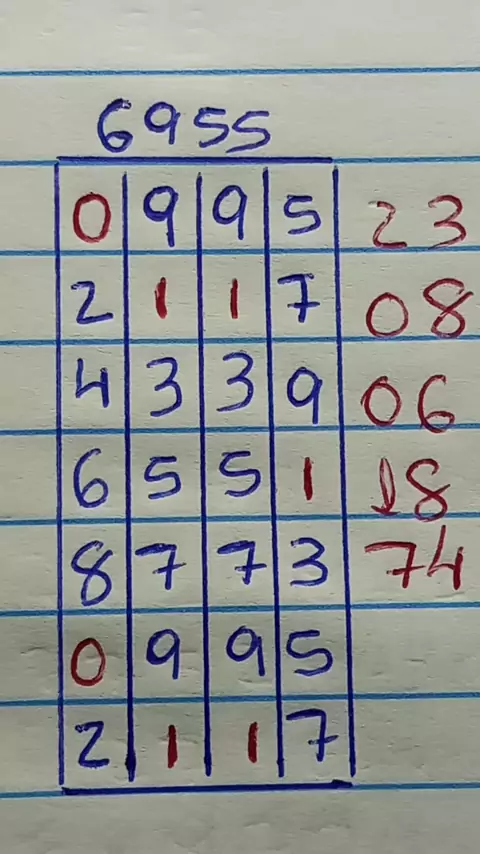 6955
0 9 9 5 23
2 1 1 7 08
4 3 3 9 06
6 5 5 1 18
8 7 7 3 74
0 9 9 5
2 1 1 7